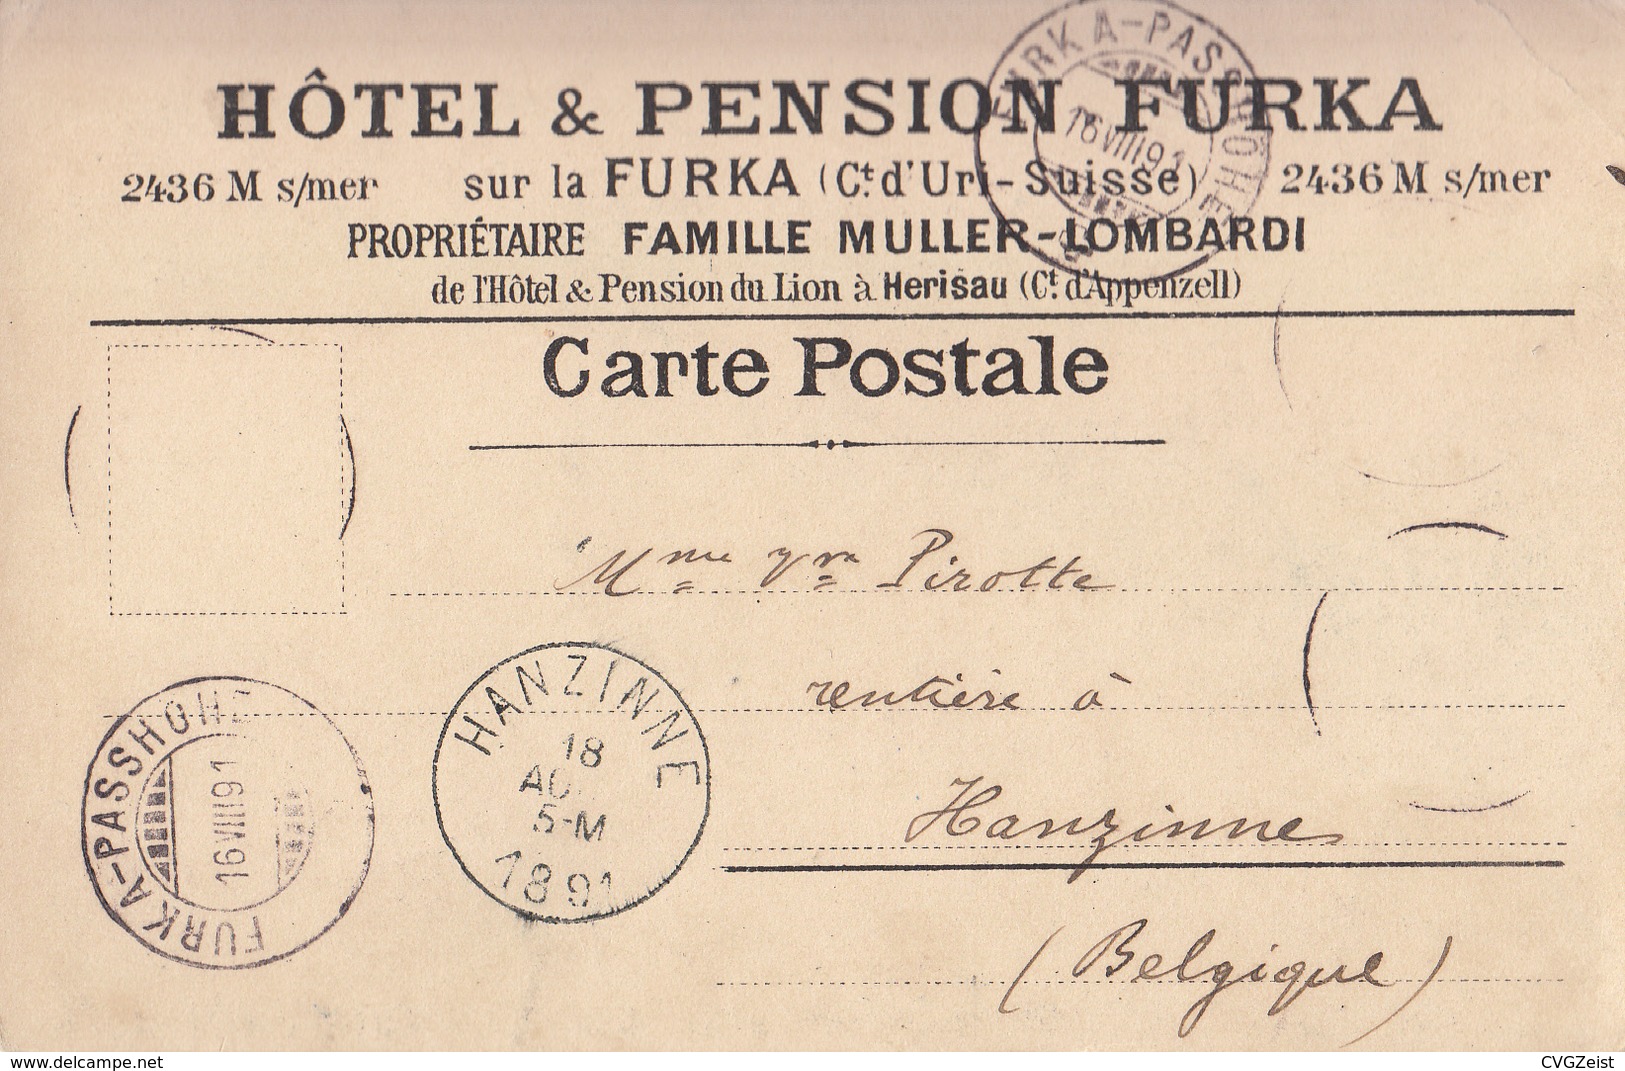 HÔTEL & PENSION FURKA
2436 M s/mer sur la FURKA (Ct. d'Uri-Suisse) 2436 M s/mer
PROPRIÉTAIRE FAMILLE MULLER-LOMBARDI
de l'Hôtel & Pension du Lion à Herisau (Ct. d'Appenzell)
FURKA-PASSHÖHE
16 VIII 91
Carte Postale
Mme Pirotte
rentière à
Hanzinne
(Belgique)
HANZINNE
18
5-M
1891
FURKA-PASSHÖHE
16 VIII 91
www.delcampe.net
CVGZeist